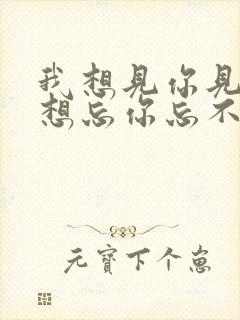 我想見你見
想忘你忘不
元寶下个崽